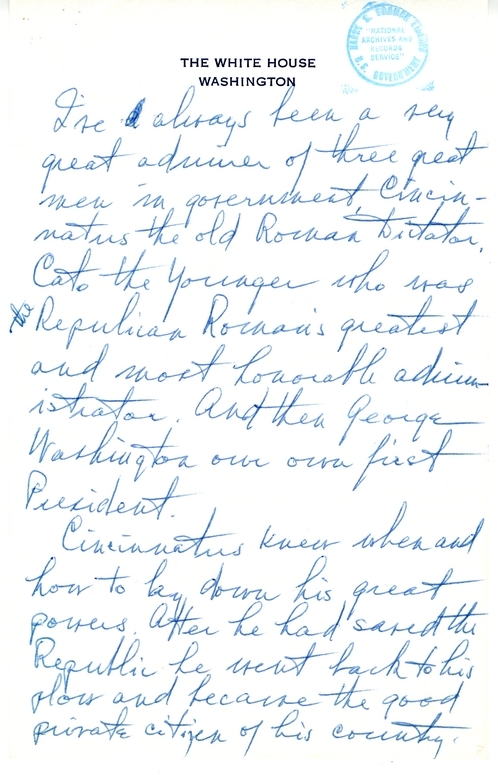 THE WHITE HOUSE
WASHINGTON
HARRY S. TRUMAN LIBRARY
"NATIONAL
ARCHIVES AND
RECORDS
SERVICE"
U.S. GOVERNMENT
I've always been a very
great admirer of three great
men in government, Cincin-
natus the old Roman Dictator,
Cato the Younger who was
the Republican Roman's greatest
and most honorable admin-
istrator. And then George
Washington our own first
President.
Cincinnatus knew when and
how to lay down his great
powers. After he had saved the
Republic he went back to his
plow and became the good
private citizen of his country.